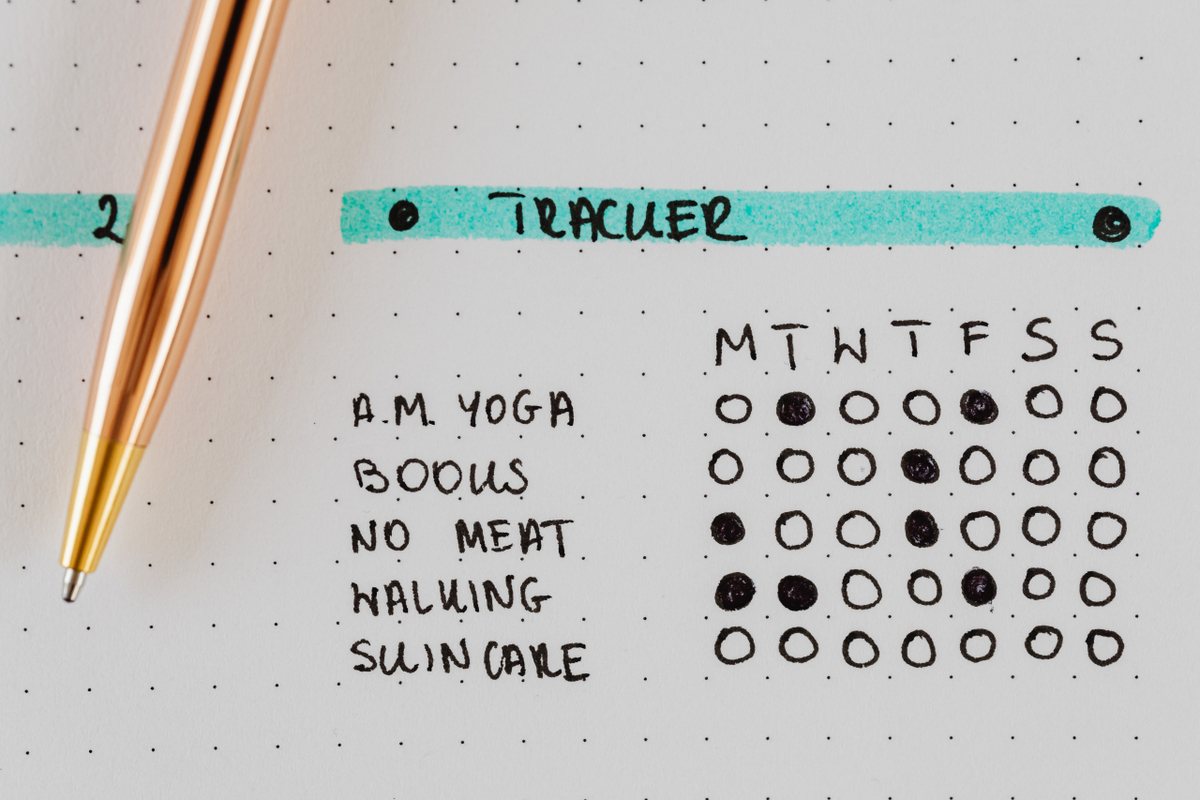 2
TRACKER
M T W T F S S
A.M. YOGA
BOOKS
NO MEAT
WALKING
SKINCARE